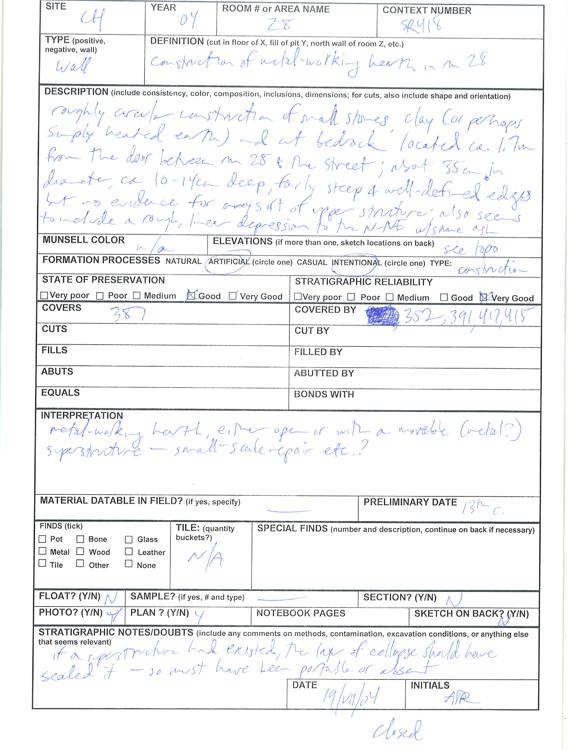 SITE CH
YEAR 04
ROOM # or AREA NAME 28
CONTEXT NUMBER SR418
TYPE (positive, negative, wall) wall
DEFINITION (cut in floor of X, fill of pit Y, north wall of room Z, etc.)
construction of metal-working hearth in rm 28
DESCRIPTION (include consistency, color, composition, inclusions, dimensions; for cuts, also include shape and orientation)
roughly circular construction of small stones, clay (or perhaps
simply heated earth) and cut bedrock located ca. 1.7m
from the door between rm 28 & the street; about 35cm in
diameter, ca 10-14cm deep, fairly steep & well-defined edges
but no evidence for any sort of upper structure; also seems
to include a rough, linear depression to the N-NE w/some ash
MUNSELL COLOR n/a
ELEVATIONS (if more than one, sketch locations on back) see topo
FORMATION PROCESSES NATURAL ARTIFICIAL (circle one) CASUAL INTENTIONAL (circle one) TYPE: construction
STATE OF PRESERVATION
STRATIGRAPHIC RELIABILITY
Very poor Poor Medium Good Very Good
Very poor Poor Medium Good Very Good
COVERS 387
COVERED BY 352, 391, 412, 415
CUTS
CUT BY
FILLS
FILLED BY
ABUTS
ABUTTED BY
EQUALS
BONDS WITH
INTERPRETATION
metal-working hearth, either open or with a movable (metal?)
superstructure – small-scale repair etc.?
MATERIAL DATABLE IN FIELD? (if yes, specify) —
PRELIMINARY DATE 13th c.
FINDS (tick)
Pot Bone Glass
Metal Wood Leather
Tile Other None
TILE: (quantity buckets?) N/A
SPECIAL FINDS (number and description, continue on back if necessary)
FLOAT? (Y/N) N
SAMPLE? (if yes, # and type) —
SECTION? (Y/N) N
PHOTO? (Y/N) Y
PLAN ? (Y/N) Y
NOTEBOOK PAGES
SKETCH ON BACK? (Y/N) N
STRATIGRAPHIC NOTES/DOUBTS (include any comments on methods, contamination, excavation conditions, or anything else
that seems relevant)
if a superstructure had existed, the layer of collapse should have
sealed it – so must have been portable or absent
DATE 19/VII/04
INITIALS
closed